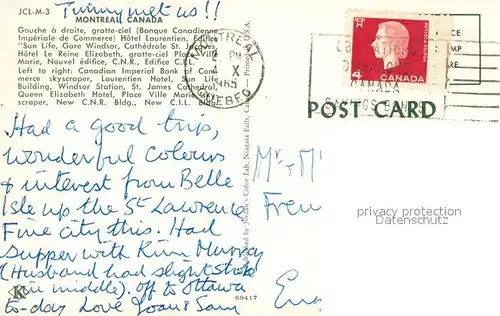 Jimmy met us!!
JCL-M-3 MONTREAL CANADA
Gouche à droite, gratte-ciel (Banque Canadienne
Impériale de Commerce) Hôtel Laurentien, Edifice
"Sun Life, Gare Windsor, Cathédrale St. Jacques,
Hôtel Reine Elizabeth, gratte-ciel Place Ville
Marie, Nouvel édifice, C.N.R., Edifice C.I.L.
Left to right: Canadian Imperial Bank of Com-
merce skyscraper, Laurentien Hotel, Sun Life
Building, Windsor Station, St. James Cathedral,
Queen Elizabeth Hotel, Place Ville Marie
scraper, New C.N.R. Bldg., New C.I.L. Bldg.
Had a good trip,
wonderful colours
& interest from Belle
Isle up the St Lawrence
Fine city this. Had
supper with Kim Murray
(Husband had slight stroke
in middle). off to Ottawa
to-day Love Joan & Sam
K
69417
Distributed by Jordan's Color Lab, Niagara Falls,
Printed in U.S.A.
MONTREAL
PM
X
1965
QUEBEC
4
CANADA
CANADA
SAVINGS BONDS
POST CARD
Mr. + M
Fren
En
privacy protection
Datenschutz